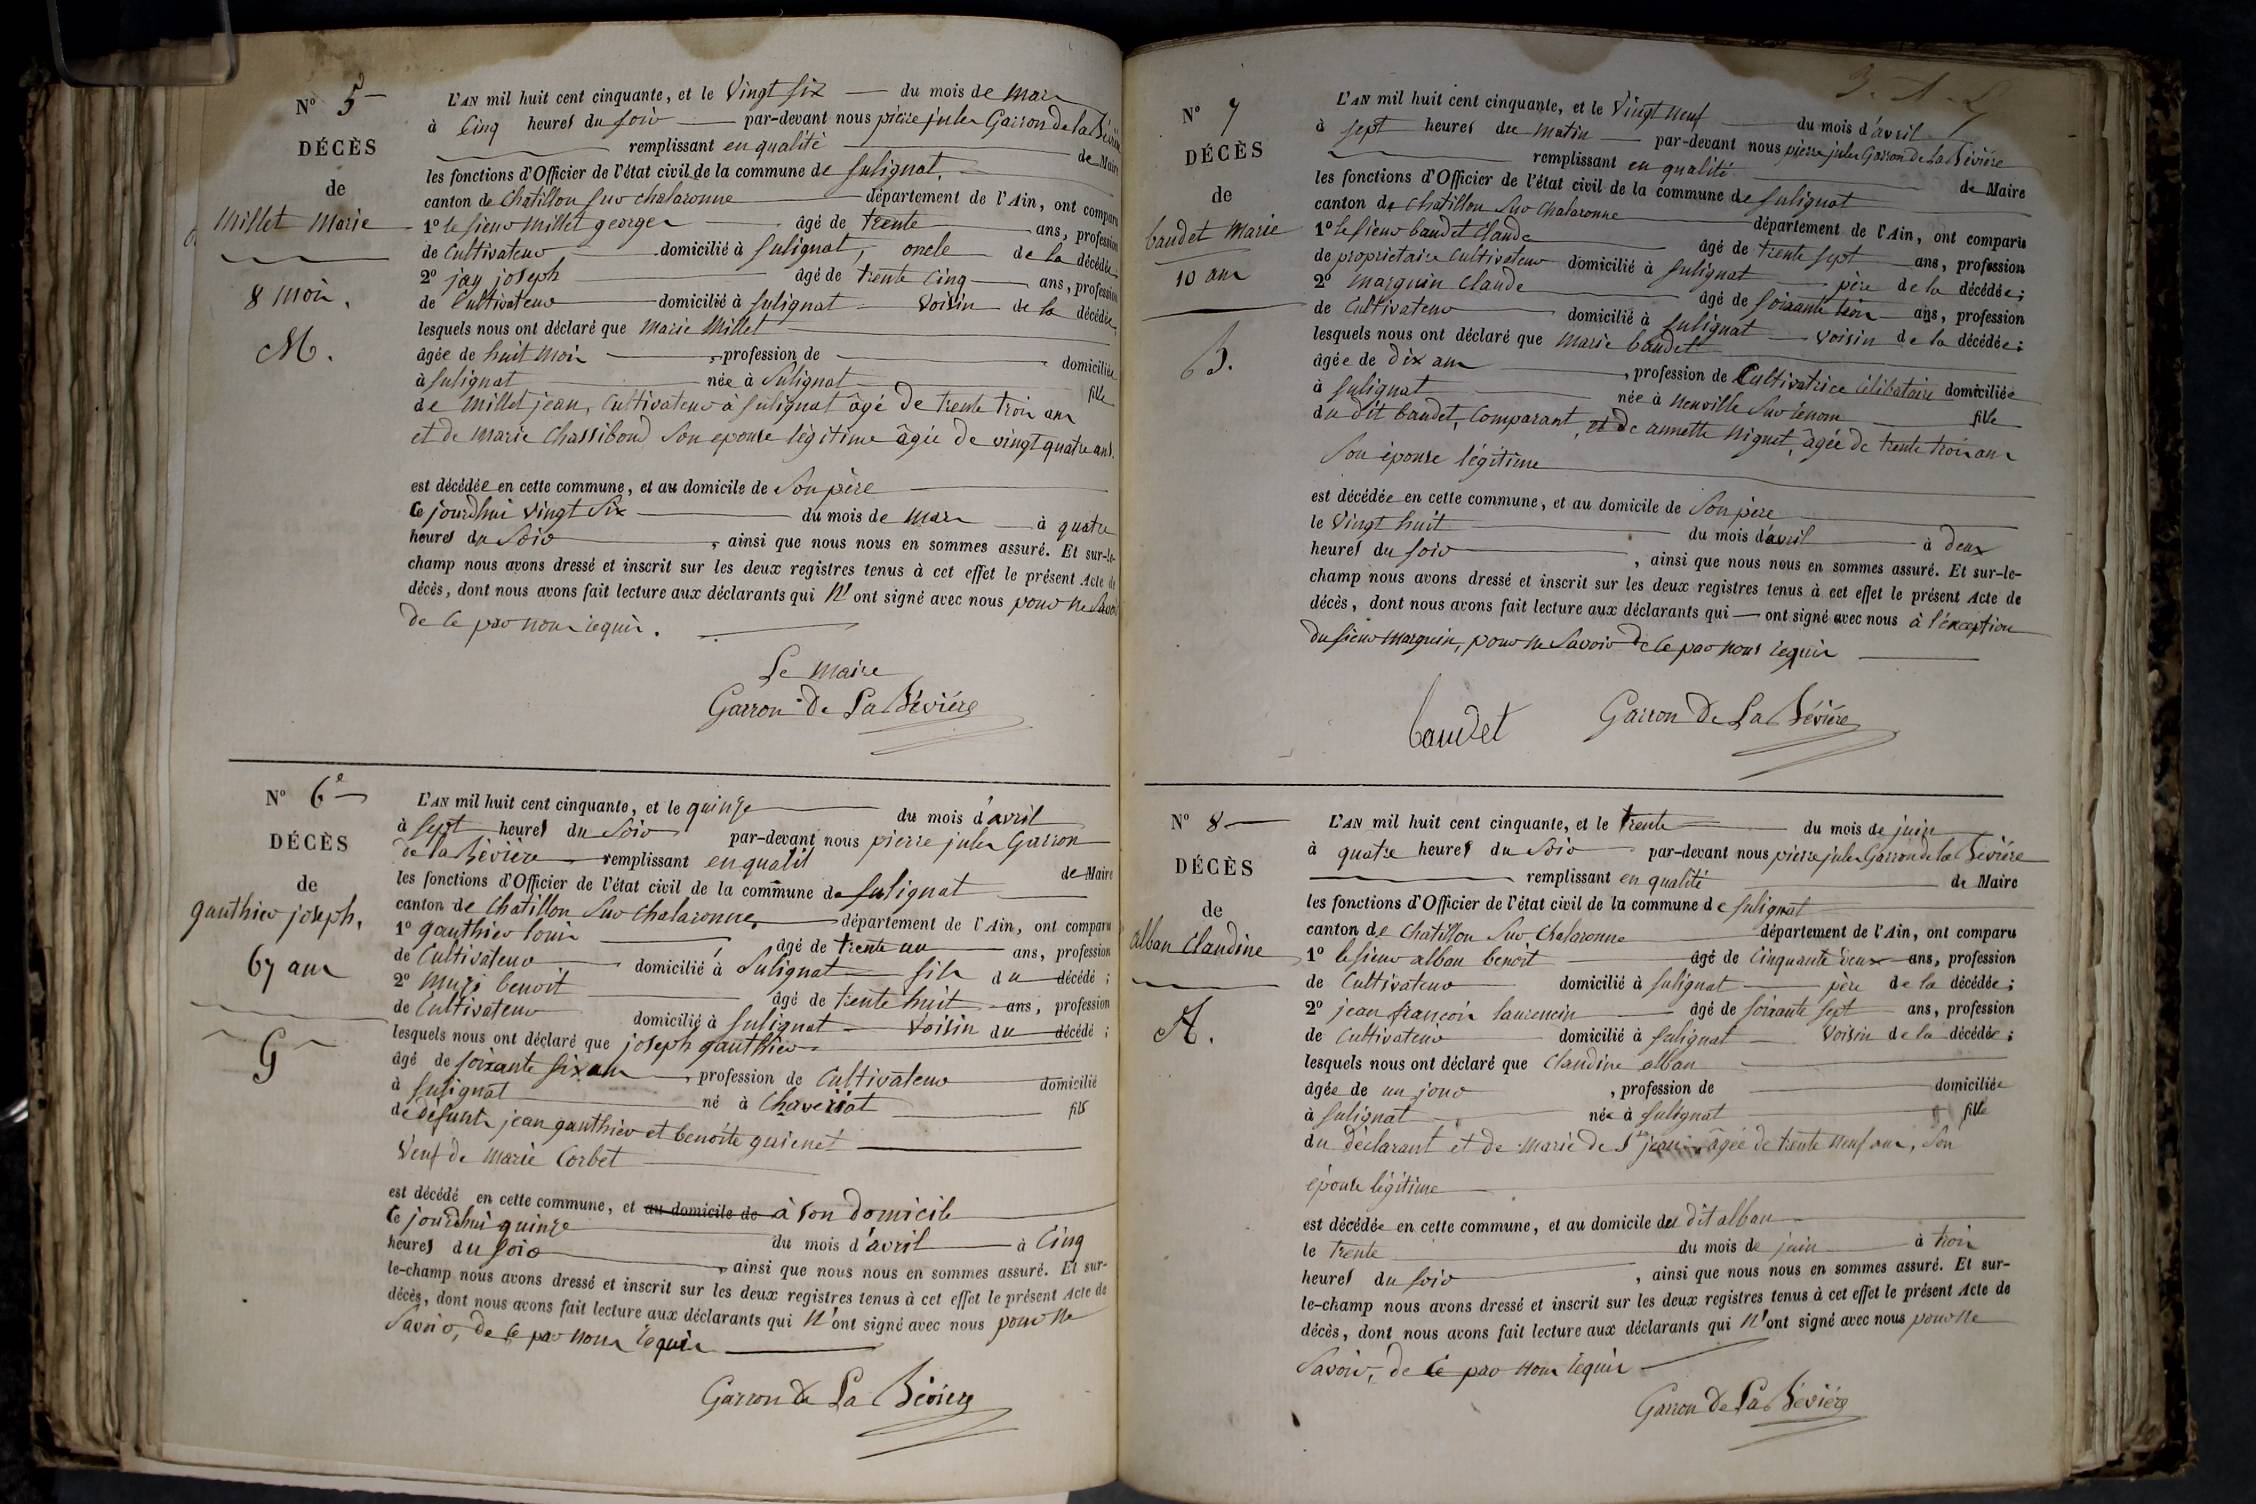 N° 5
DÉCÈS
de
Millet Marie
8 mois.
M.
L'AN mil huit cent cinquante, et le Vingt six du mois de mars
à Cinq heures du soir par-devant nous pierre jules Garron de la Bévière
remplissant en qualité de Maire
les fonctions d'Officier de l'état civil de la commune de Sulignat.
canton de Chatillon sur chalaronne département de l'Ain, ont comparu
1° le sieur Millet georges âgé de trente ans, profession
de Cultivateur domicilié à Sulignat, oncle de la décédée
2° jay joseph âgé de trente cinq ans, profession
de Cultivateur domicilié à Sulignat voisin de la décédée,
lesquels nous ont déclaré que Marie Millet
âgée de huit mois, profession de domiciliée
à Sulignat née à Sulignat fille
de Millet jean, Cultivateur à Sulignat âgé de trente trois ans
et de Marie Chassiboud son epouse légitime âgée de vingt quatre ans.
est décédée en cette commune, et au domicile de Son père
Ce jourd'hui vingt six du mois de mars à quatre
heures du Soir, ainsi que nous nous en sommes assuré. Et sur-le-
champ nous avons dressé et inscrit sur les deux registres tenus à cet effet le présent Acte de
décès, dont nous avons fait lecture aux déclarants qui n'ont signé avec nous pour ne Savoir
de ce par nous requis.
Le Maire
Garron De La Bévière
N° 6
DÉCÈS
de
gauthier joseph.
67 ans
G
L'AN mil huit cent cinquante, et le quinze du mois d'avril
à sept heures du Soir par-devant nous pierre jules Garron
de la Bévière remplissant en qualit de Maire
les fonctions d'Officier de l'état civil de la commune de Sulignat
canton de Chatillon Sur chalaronne, département de l'Ain, ont comparu
1° gauthier louis âgé de trente un ans, profession
de Cultivateur domicilié à Sulignat fils du décédé ;
2° benoit âgé de trente huit ans, profession
de Cultivateur domicilié à Sulignat Voisin du décédé ;
lesquels nous ont déclaré que joseph gauthier
âgé de soixante six ans, profession de Cultivateur domicilié
à Sulignat né à Chaveriat fils
de défunts jean gauthier et benoite
Veuf de Marie Corbet
est décédé en cette commune, et au domicile de à Son domicile
Ce jourd'hui quinze du mois d'avril à Cinq
heures du Soir, ainsi que nous nous en sommes assuré. Et sur-
le-champ nous avons dressé et inscrit sur les deux registres tenus à cet effet le présent Acte de
décès, dont nous avons fait lecture aux déclarants qui n'ont signé avec nous pour ne
Savoir, de ce par nous requis
Garron De La Bévière
N° 7
DÉCÈS
de
baudet Marie
10 ans
B.
L'AN mil huit cent cinquante, et le Vingt neuf du mois d'avril
à sept heures du matin par-devant nous pierre jules Garron de la Bévière
remplissant en qualité de Maire
les fonctions d'Officier de l'état civil de la commune de Sulignat
canton de Chatillon Sur Chalaronne département de l'Ain, ont comparu
1° le sieur baudet Claude âgé de trente sept ans, profession
de proprietaire Cultivateur domicilié à Sulignat père de la décédée ;
2° marguin Claude âgé de soixante trois ans, profession
de Cultivateur domicilié à Sulignat Voisin de la décédée ;
lesquels nous ont déclaré que Marie baudet
âgée de dix ans, profession de Cultivatrice célibataire domiciliée
à Sulignat née à Neuville Sur renom fille
du dit baudet, Comparant, et de annette Niguet, âgée de trente trois ans
Son épouse légitime
est décédée en cette commune, et au domicile de Son père
le Vingt huit du mois d'avril à deux
heures du Soir, ainsi que nous nous en sommes assuré. Et sur-le-
champ nous avons dressé et inscrit sur les deux registres tenus à cet effet le présent Acte de
décès, dont nous avons fait lecture aux déclarants qui ont signé avec nous à l'exception
du sieur Marguin, pour ne Savoir de ce par nous requis
baudet Garron De La Bévière
N° 8
DÉCÈS
de
alban Claudine
A.
L'AN mil huit cent cinquante, et le trente du mois de juin
à quatre heures du Soir par-devant nous pierre jules Garron de la Bévière
remplissant en qualité de Maire
les fonctions d'Officier de l'état civil de la commune de Sulignat
canton de Chatillon Sur Chalaronne département de l'Ain, ont comparu
1° le sieur alban benoit âgé de Cinquante deux ans, profession
de Cultivateur domicilié à Sulignat père de la décédée ;
2° jean françois laurencin âgé de soixante sept ans, profession
de Cultivateur domicilié à Sulignat Voisin de la décédée ;
lesquels nous ont déclaré que Claudine alban
âgée de un jour, profession de domiciliée
à Sulignat née à Sulignat fille
du déclarant et de Marie de St jean âgée de trente neuf ans, Son
épouse légitime
est décédée en cette commune, et au domicile du dit alban
le trente du mois de juin à trois
heures du Soir, ainsi que nous nous en sommes assuré. Et sur-
le-champ nous avons dressé et inscrit sur les deux registres tenus à cet effet le présent Acte de
décès, dont nous avons fait lecture aux déclarants qui n'ont signé avec nous pour ne
Savoir, de ce par nous requis
Garron De La Bévière